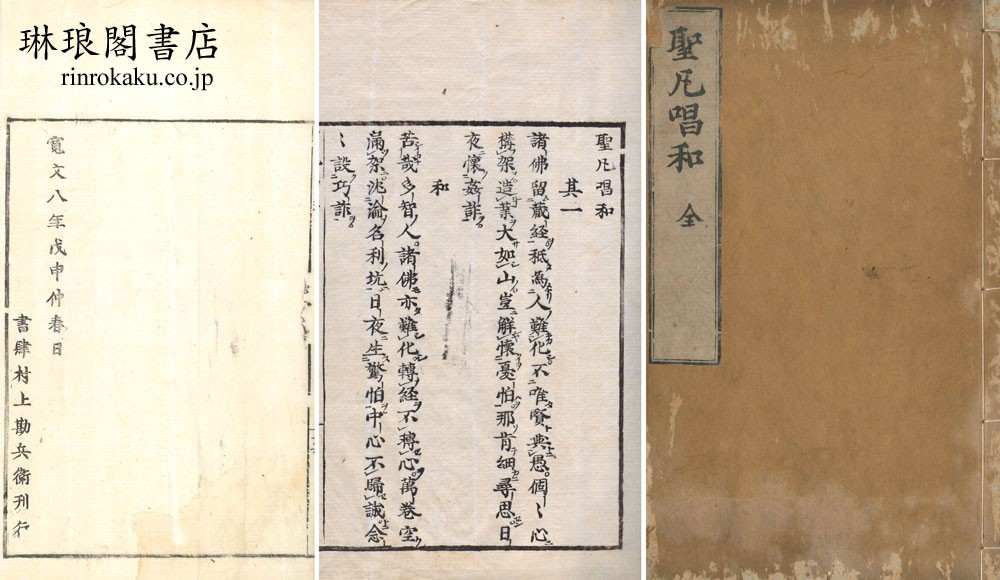 琳琅閣書店
rinrokaku.co.jp
聖凡唱和 全
聖凡唱和
其一
諸佛留藏經秖為人難化不唯賢與愚個〻心
構架造業大如山豈解懷憂怕那肯細尋思日
夜懷姦詐
和
苦哉多智人諸佛亦難化轉經不轉心萬卷空
滿架沉淪名利坑日夜生驚怕中心不歸誠念
〻設巧詐
寬文八年戊申仲春日
書肆村上勘兵衛刊行